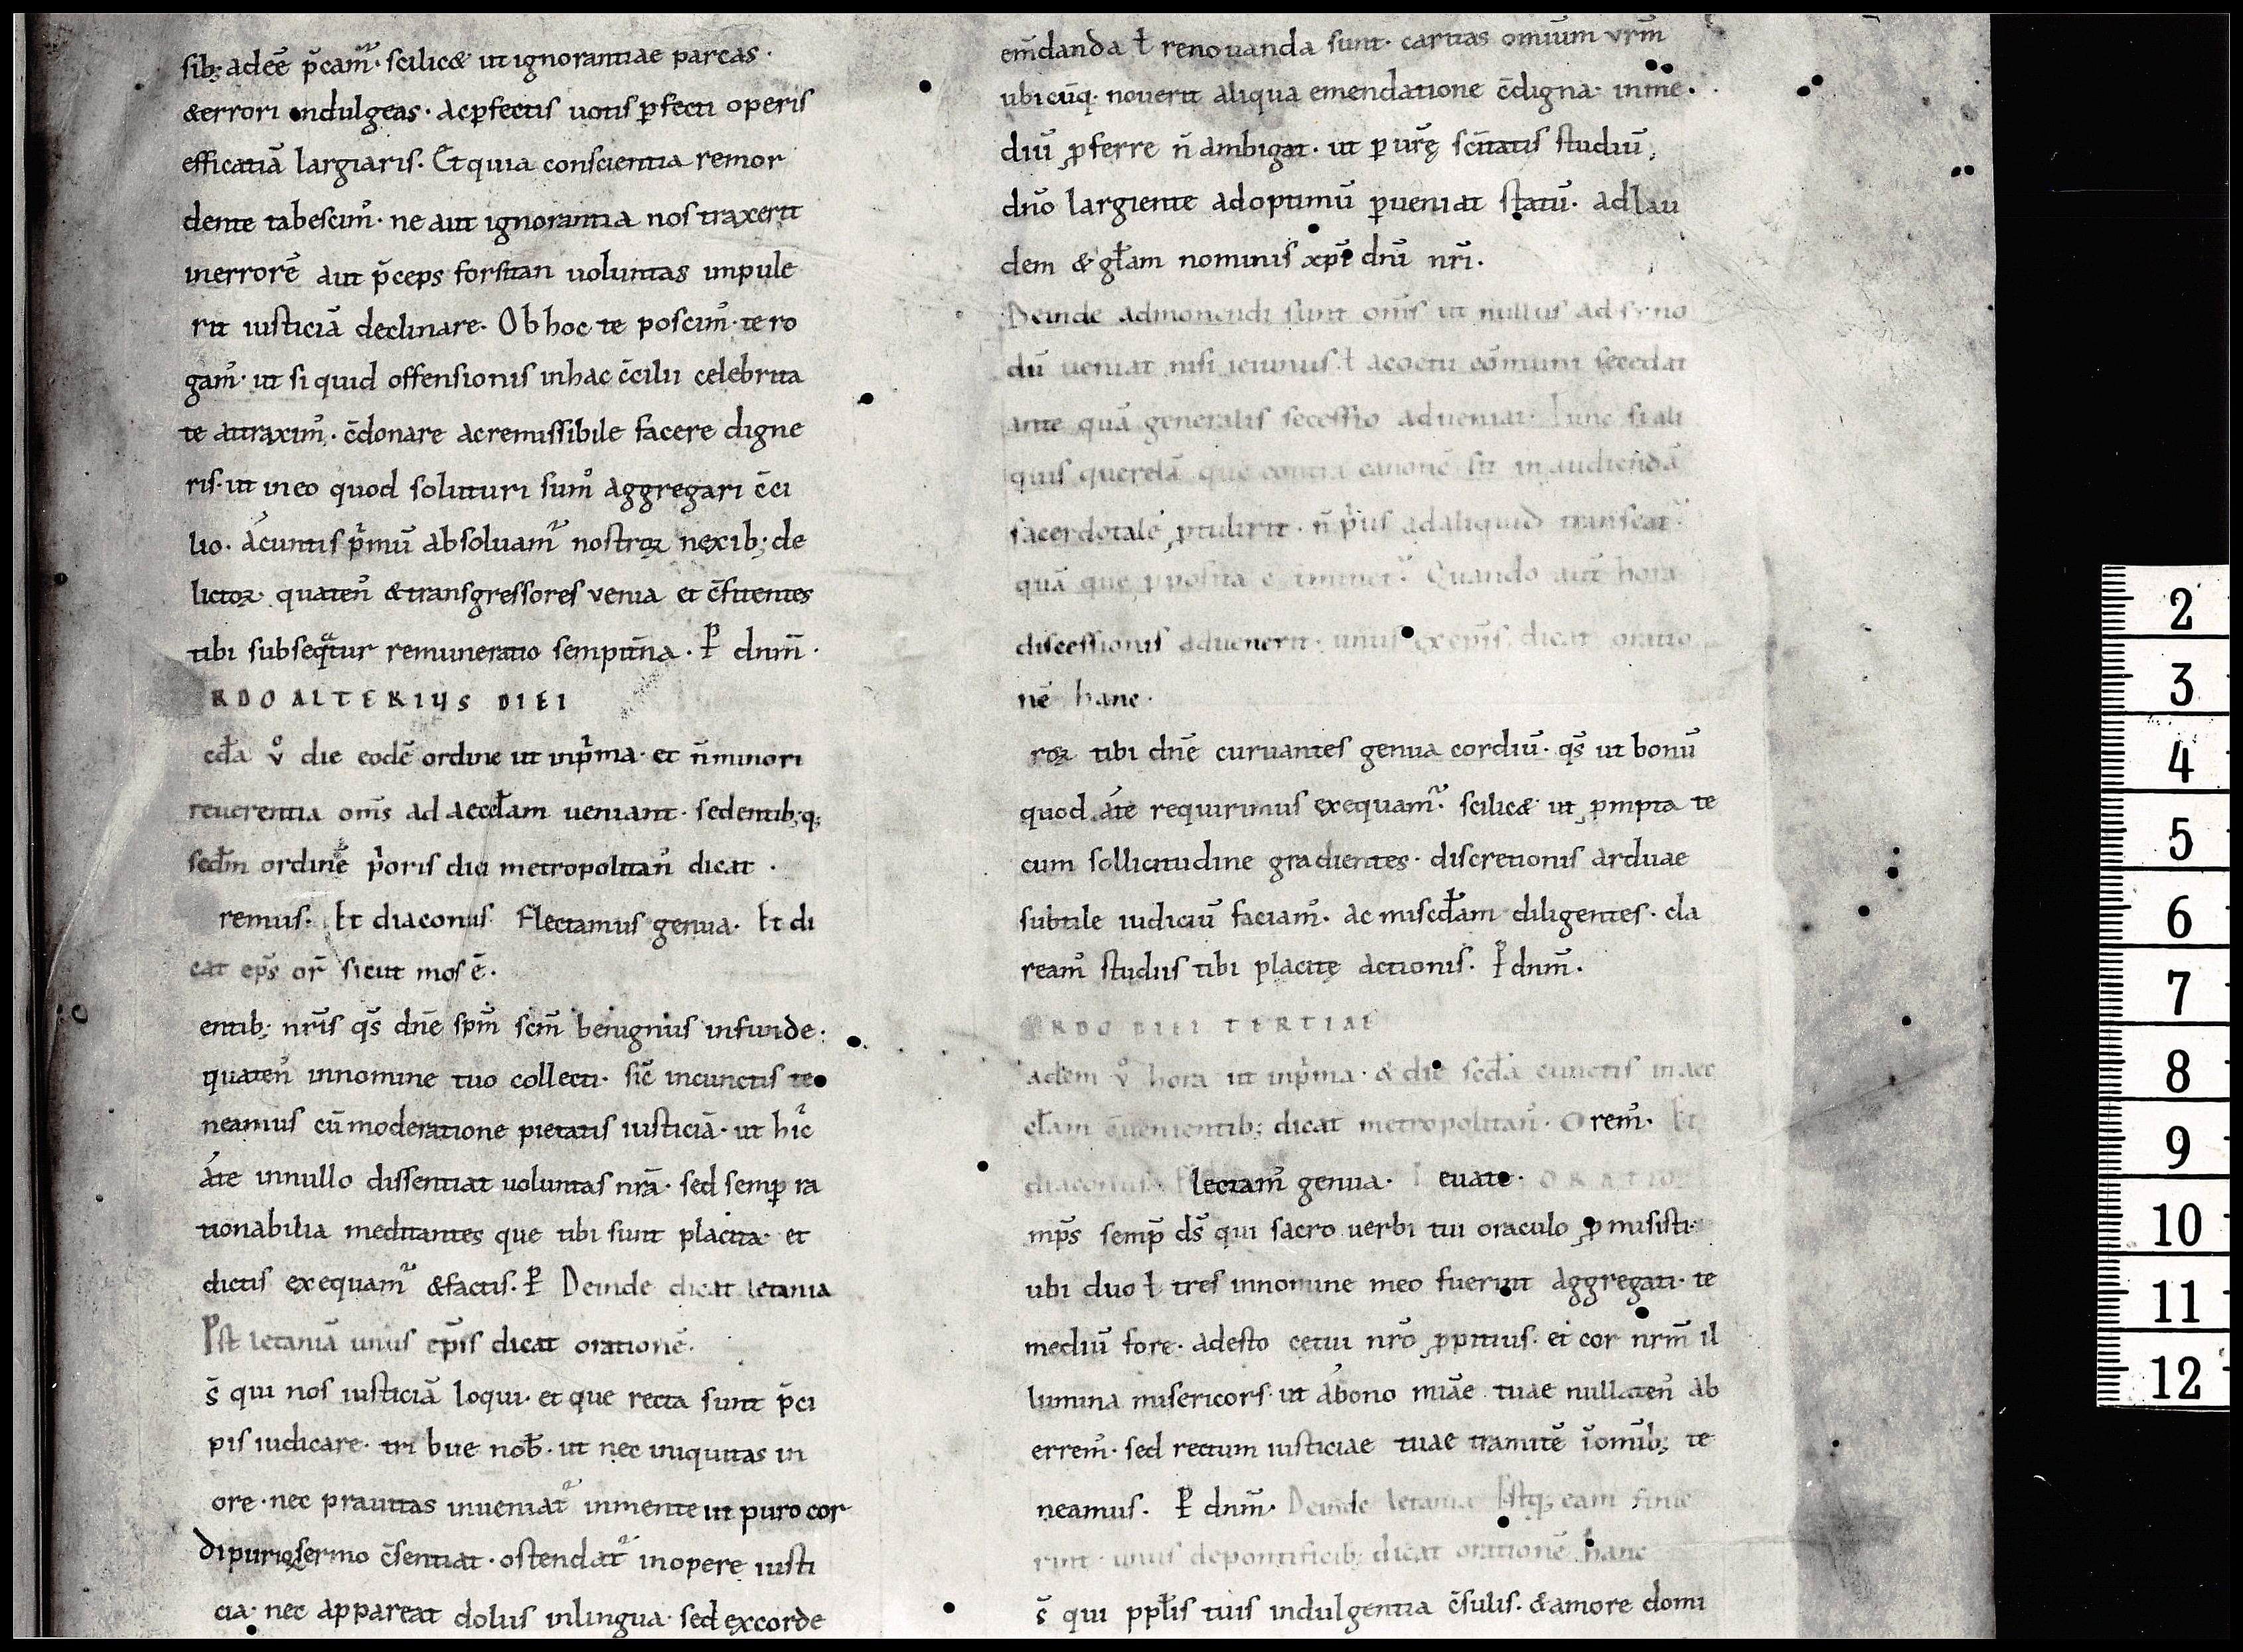 sib; adeē p̄camᷣ· scilic& ut ignorantiae parcas·
&errori indulgeas· acꝑfectis uotis ꝑfecti operis
efficatiā largiaris. Et quia conscientia remor
dente tabescim᷒· ne aut ignorantia nos traxerit
inerrorē aut p̄ceps forsitan uoluntas impule
rit iusticiā declinare. Ob hoc te poscim᷒· te ro
gam᷒· ut si quid offensionis inhac c̄cilii celebrita
te attraxim᷒· c̄donare acremissibile facere digne
ris· ut ineo quod soluturi sum᷒ aggregari c̄ci
lio· á cunctis p̍mū absoluamᷣ nostroꝝ nexib; de
lictoꝝ· quaten᷒ &transgressores venia et c̄fitentes
tibi subseqᷓtur remuneratio sempit̄na. ꝑ dnm̄·
RDO ALTERIUS DIEI
cd̄a v᷒ die eodē ordine ut inp̍ma· et n̄minori
reuerentia om̄s ad aeccl̄am ueniant· sedentib;q;
scd̄m ordinē p̍oris diei metropolitan᷒ dicat·
remus. Et diaconus Flectamus genua. Et di
cat ep̄s or̄ sicut mos ē.
entib; nr̄is qs̄ dnē spm̄ scm̄ benignus infunde·
quaten᷒ innomine tuo collecti· sic̄ incunctis te
neamus cū moderatione pietatis iusticiā· ut hic̄
á te innullo dissentiat uoluntas nr̄a· sed semꝑ ra
tionabilia meditantes que tibi sunt placita· et
dictis exequamᷣ &factis. ꝑ Deinde dicat letania
Post letaniā unus ep̄is dicat orationē.
s̄ qui nos iusticiā loqui· et que recta sunt p̄ci
pis iudicare· tribue nob̄· ut nec iniquitas in
ore· nec prauitas inueniatᷣ inmente ut puro cor
di purior sermo c̄sentiat· ostendatᷣ inopere iusti
cia· nec appareat dolus inlingua· sed excorde
em̄danda ł renouanda sunt· caritas omium vr̄m
ubicūq· nouerit aliqua emendatione c̄digna· inme
diū ꝓferre n̄ ambigat· ut ꝑ ur̄ę sc̄itatis studiū,
dn̄o largiente adoptimū ꝑueniat statū· adlau
dem & gl̄am nominis xp̄i dnī nr̄i.
Deinde admonendi sunt om̄s ut nullus ad syno
dū ueniat nisi ieiunus· ł acoetu cōmuni secedat
ante quā generalis secessio adueniat· Tunc si ali
quis querelā que contra canonē sit in audiendā
sacerdotalē ꝓtulirit· n̄ p̍us adaliquid transeatᷣ
quā que ꝓposita ē iminet᷒. Quando aut̄ hora
discessionis aduenerit· unus ex ep̄is dicat oratio
nē hanc·
roꝝ tibi dnē curuantes genua cordiū· qs̄ ut bonū
quod á te requirimus exequamᷣ· scilic& ut ꝓmpta te
cum sollicitudine gradientes· discretionis arduae
subtile iudiciū faciam᷒· ac miscd̄am diligentes· cla
ream᷒ studiis tibi placitę actionis. ꝑ dnm̄.
ORDO DIEI TERTIAE
adem v᷒ hora ut inp̍ma· & die scd̄a cunctis in aec
cl̄am c̄uenientib; dicat metropolitan᷒· Orem᷒· Et
diaconus Flectam᷒ genua. Leuate· ORATIO
mp̄s semꝑ ds̄ qui sacro uerbi tui oraculo ꝓmisisti·
ubi duo ł tres innomine meo fuerint aggregati· te
mediū fore· adesto cetui nr̄o ꝓpitius· et cor nr̄m il
lumina misericors· ut ábono miā̄e tuae nullaten᷒ ab
errem᷒· sed rectum iusticiae tuae tramitē īomīb; te
neamus. ꝑ dnm̄. Deinde letania Postq; eam finie
rint· unus depontificib; dicat orationē hanc
s̄ qui ppl̄is tuis indulgentia c̄sulis· &amore domi
2
3
4
5
6
7
8
9
10
11
12